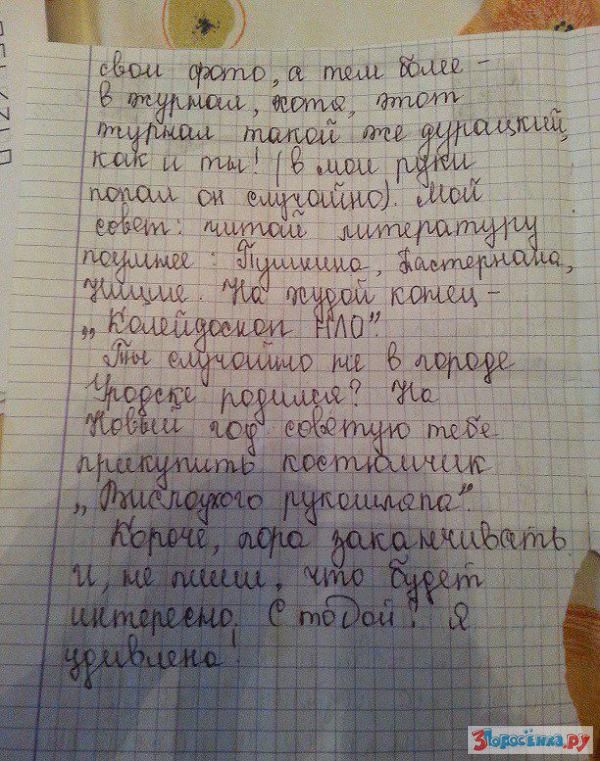 свои фото, а тем более –
в журнал, хотя, этот
журнал такой же дурацкий,
как и ты! (в мои руки
попал он случайно). Мой
совет: читай литературу
поумнее: Пушкина, Пастернака,
Ницше. На худой конец –
„Колейдоскоп НЛО".
Ты случайно не в городе
Уродске родился? На
Новый год советую тебе
прикупить костюмчик
„Вислоухого рукошлёпа".
Короче, пора заканчивать
и, не пиши, что будет
интересно. С тобой! Я
удивлена!
3Поросёнка.ру